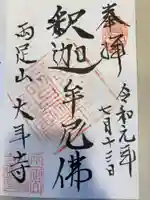 奉拝
令和元年
七月十三日
釋迦牟尼佛
両足山
大年寺